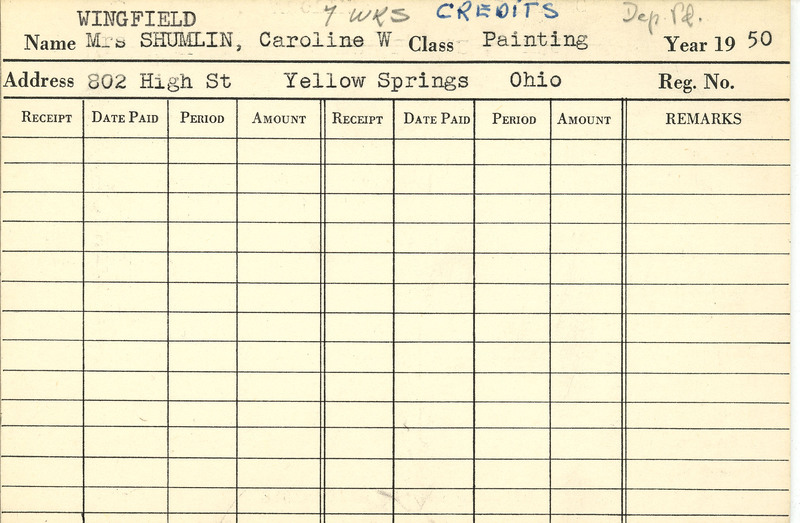 WINGFIELD 7 WKS CREDITS Dep. Pd.
Name Mrs SHUMLIN, Caroline W Class Painting Year 19 50
Address 802 High St Yellow Springs Ohio Reg. No.
RECEIPT DATE PAID PERIOD AMOUNT RECEIPT DATE PAID PERIOD AMOUNT REMARKS